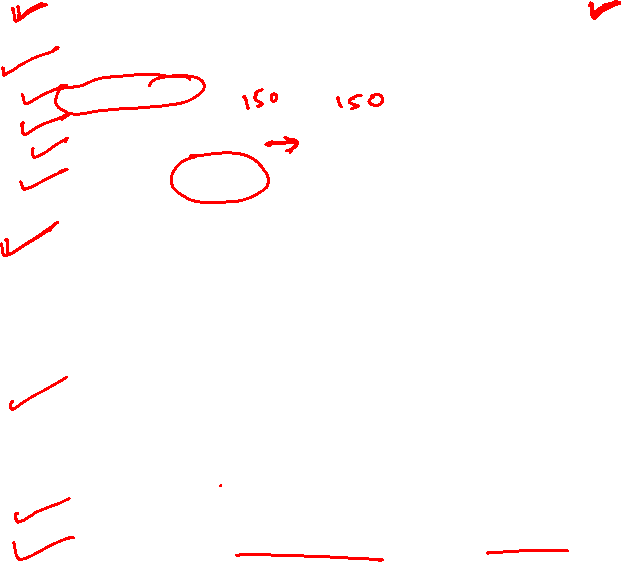 150 150